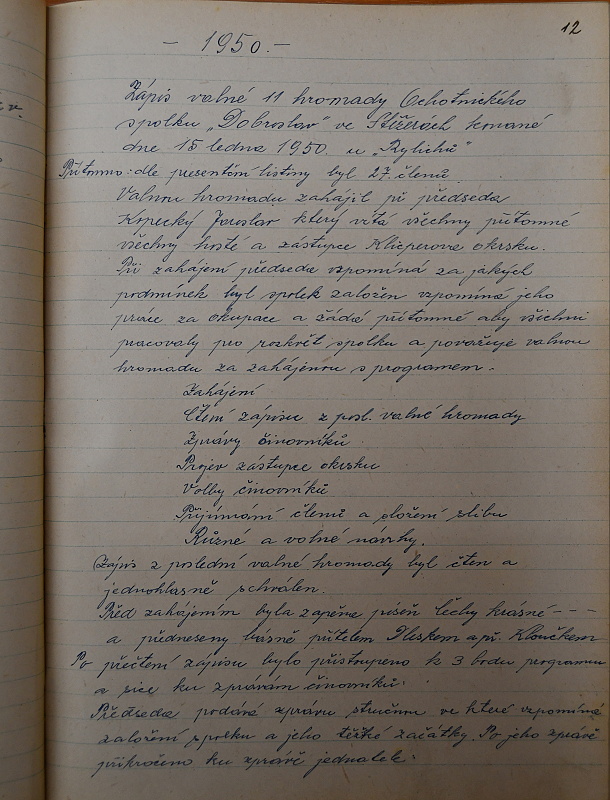 12
- 1950. -
Zápis valné 11 hromady Ochotnického
spolku „Dobroslav" ve Stěžerách konané
dne 15 ledna 1950. u „Rylichů"
Přítomno: dle presentční listiny byl 27. členů
Valnou hromadu zahájil př předseda
Kopecký Jaroslav který vítá všechny přítomné
všechny hosté a zástupce Klicperova okrsku.
Při zahájení předseda vzpomíná za jakých
podmínek byl spolek založen vzpomíná jeho
práce za okupace a žádá přítomné aby všichni
pracovaly pro rozkvět spolku a považuje valnou
hromadu za zahájenou s programem.
Zahájení
Čtení zápisu z posl. valné hromady
Zprávy činovníků.
Projev zástupce okrsku
Volby činovníků
Přijímání členů a složení slibu
Různé a volné návrhy.
Zápis z poslední valné hromady byl čten a
jednohlasně schválen.
Před zahájením byla zapěna píseň Čechy krásné - - -
a předneseny básně přítelem Pleskem a př. Kloučkem
Po přečtení zápisu bylo přistoupeno k 3 bodu programu
a sice ku zprávám činovníků.
Předseda podává zprávu stručnou ve které vzpomíná
založení spolku a jeho těžké začátky. Po jeho zprávě
přikročeno ku zprávě jednatele.